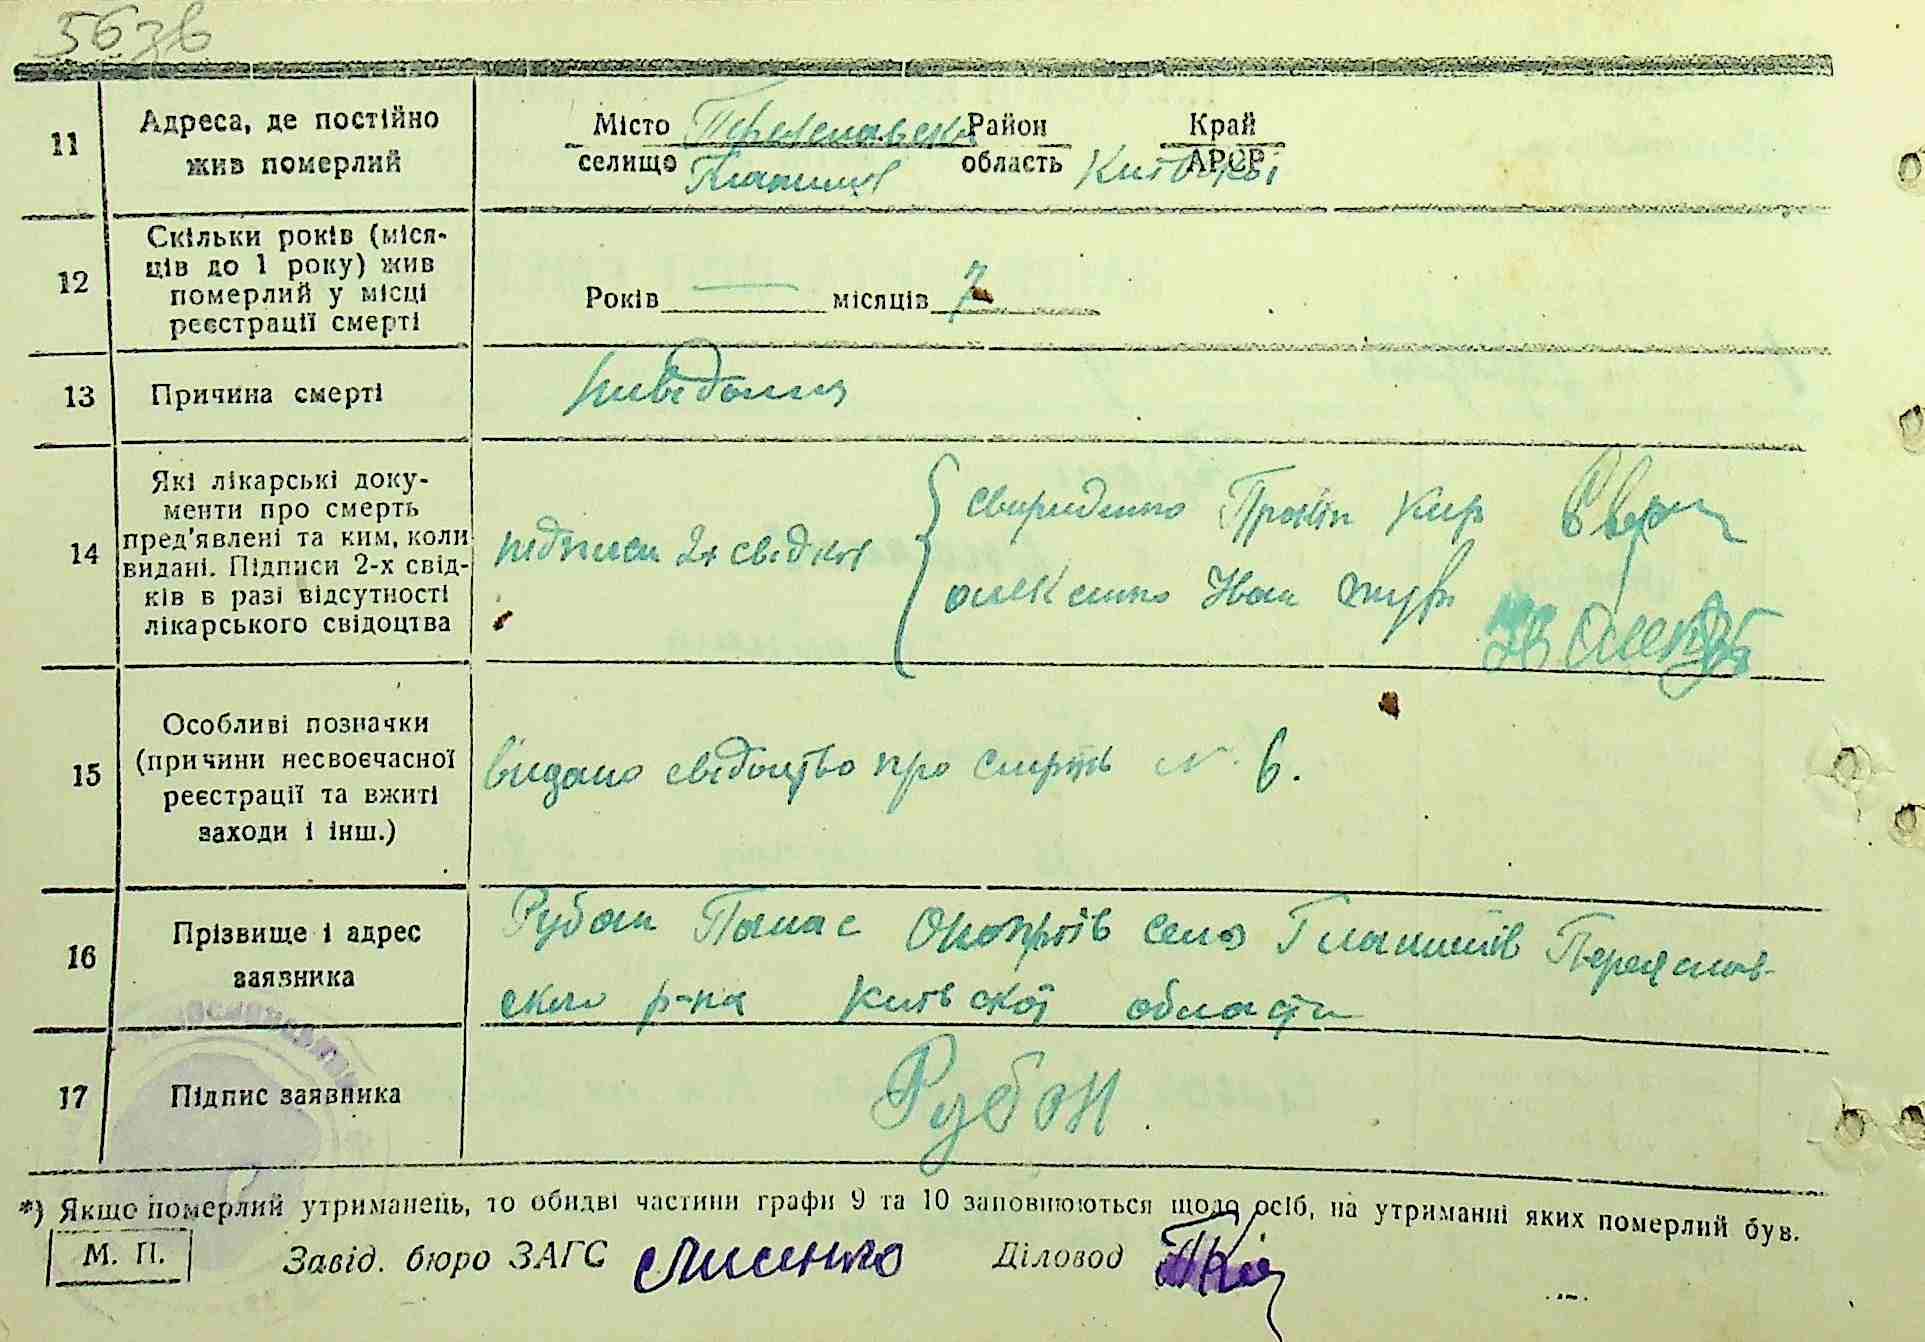 563в
11 Адреса, де постійно жив померлий
Місто Переяславськ Район Край
селище Гланишів область Київської АРСР
12 Скільки років (міся-
ців до 1 року) жив
померлий у місці
реєстрації смерті
Років — місяців 7
13 Причина смерті
невідома
14 Які лікарські доку-
менти про смерть
пред'явлені та ким, коли
видані. Підписи 2-х свід-
ків в разі відсутності
лікарського свідоцтва
підписи 2х свідків
Свириденко Прокіп Кир
Олексенко Іван
15 Особливі позначки
(причини несвоєчасної
реєстрації та вжиті
заходи і інш.)
видано свідоцтво про смерть N. 6.
16 Прізвище і адрес
заявника
Рубан Панас село Гланишів Переяслав-
ского р-на Київської області
17 Підпис заявника
Рубан
*) Якщо померлий утриманець, то обидві частини графи 9 та 10 заповнюються щодо осіб, на утриманні яких померлий був.
М. П. Завід. бюро ЗАГС Лисенко Діловод